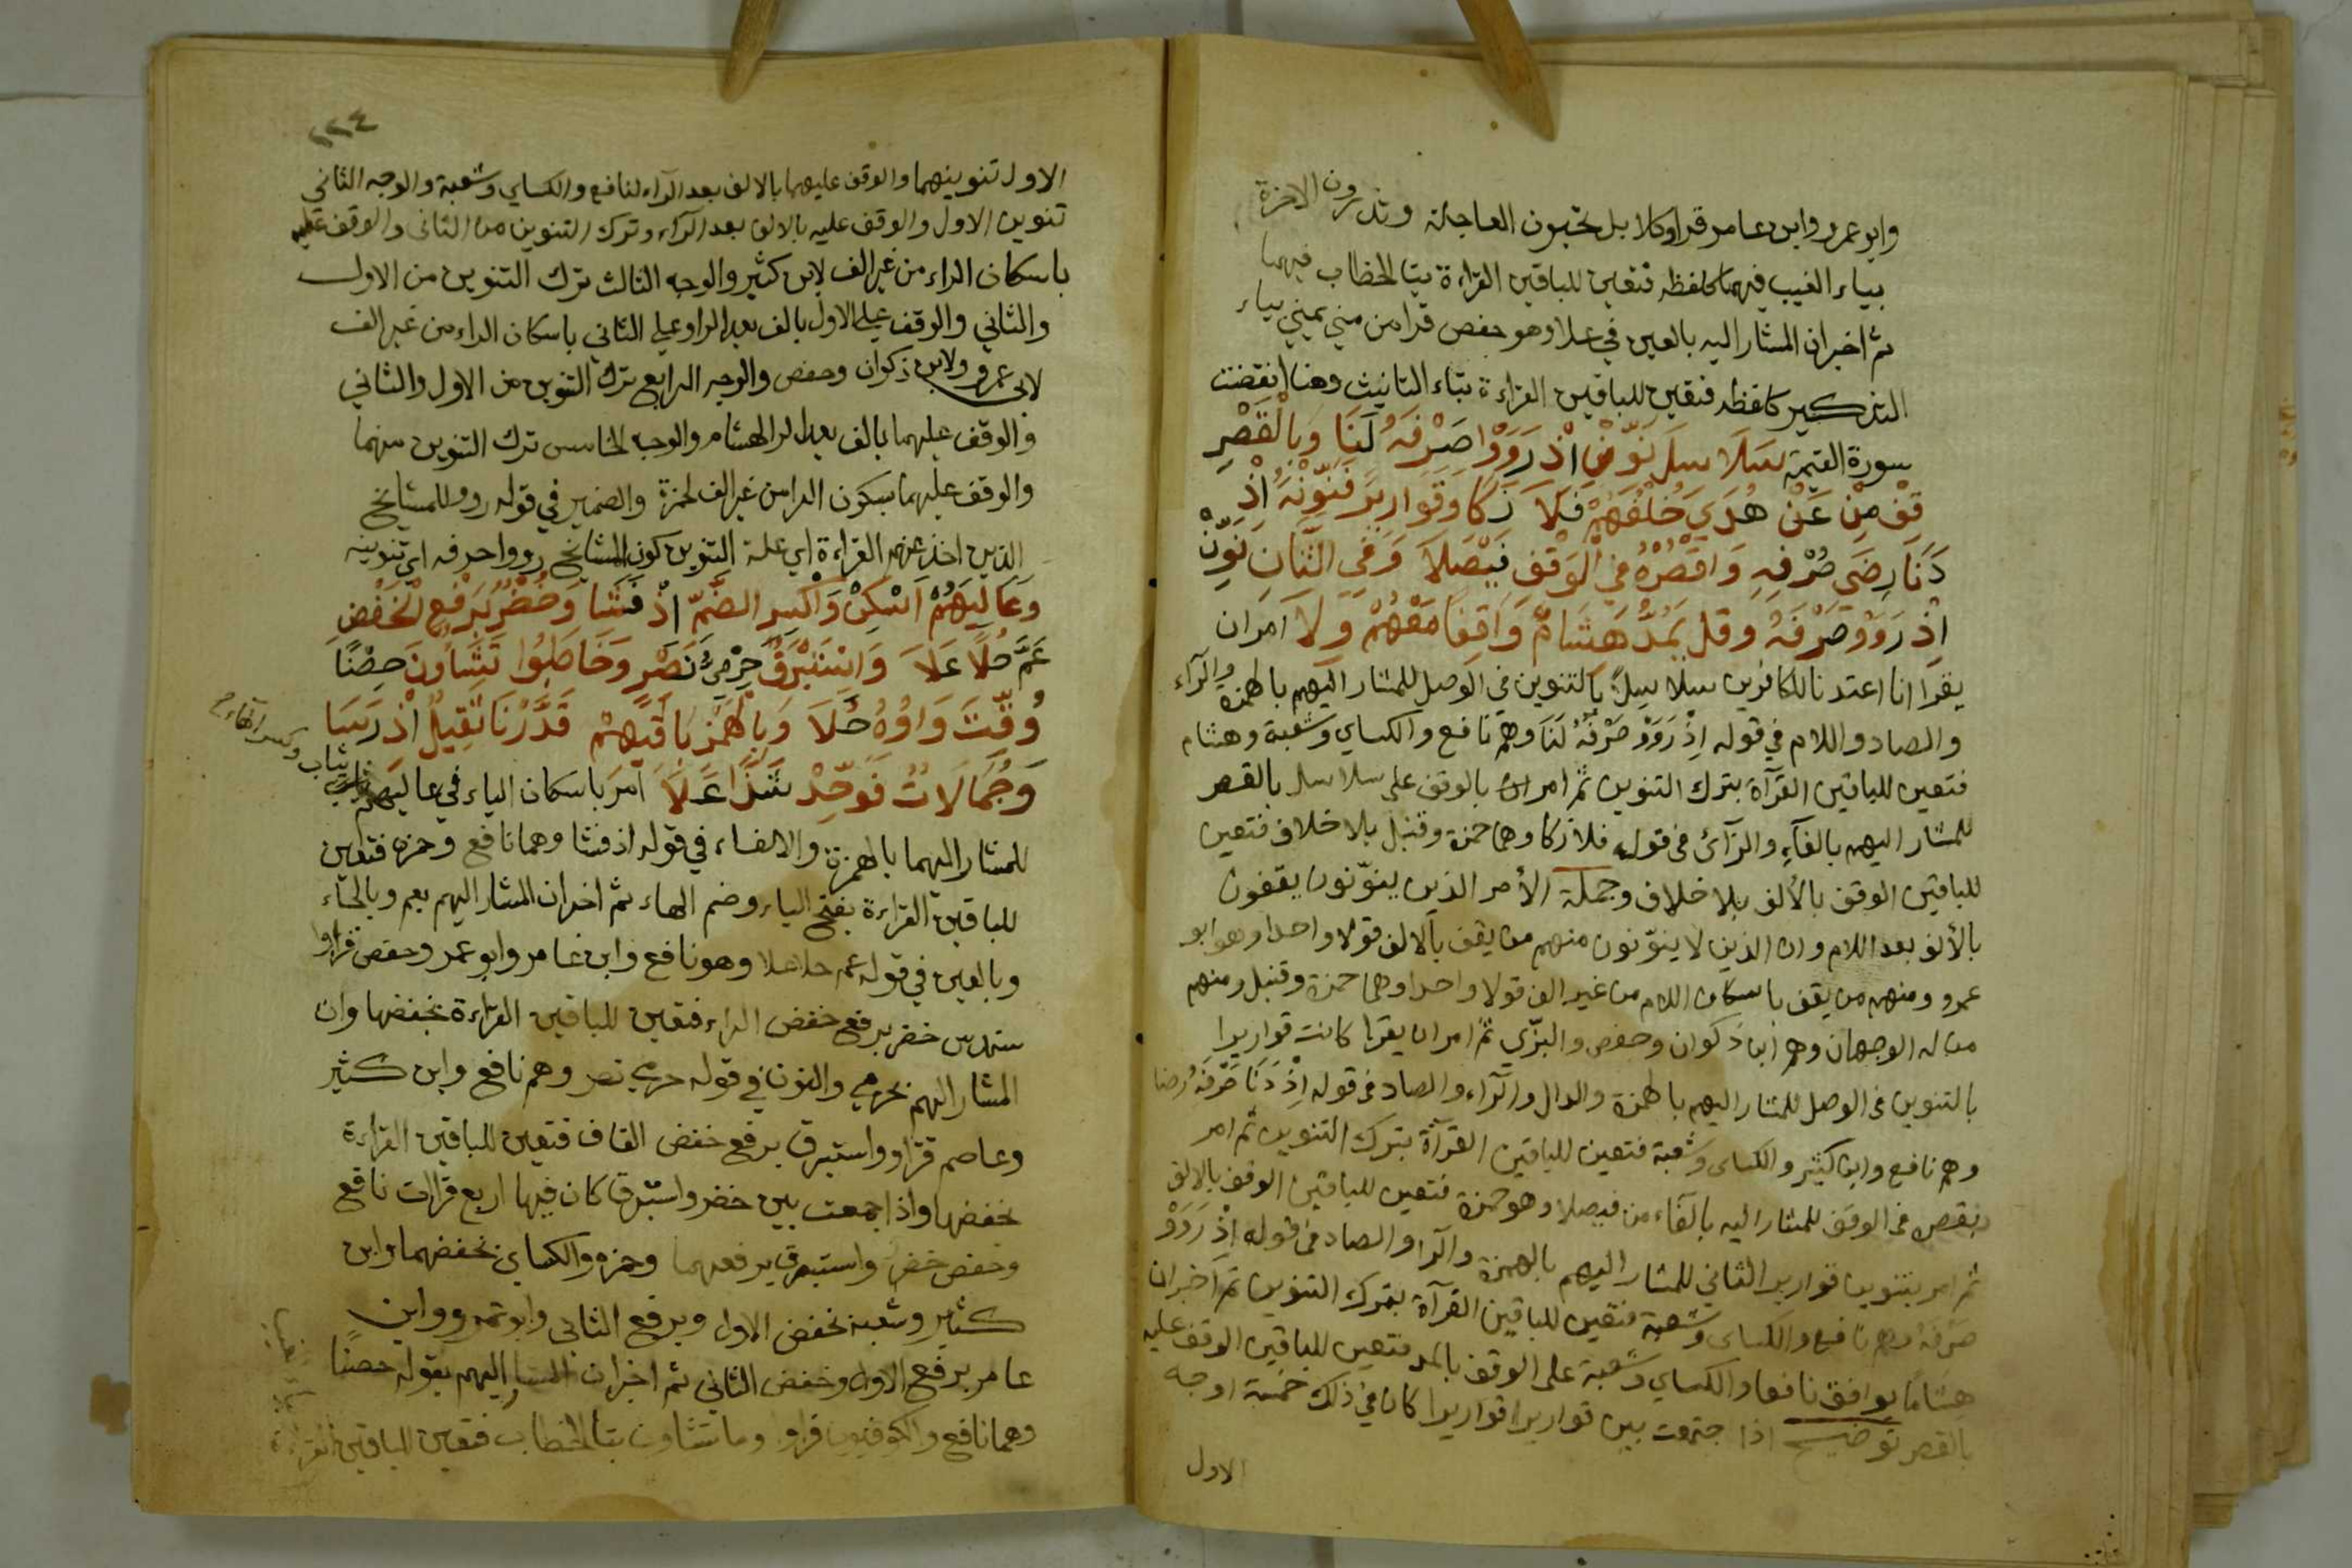 وابو عمرو وابن عامر قراوكلا بل يحبون العاجلة ويذرون الاخرة
بياء الغيب فيهما كلفظه فتعين للباقين القراءة بتا الخطاب فيهما
ثم اخبران المشار اليه بالعين في علا وهو حفص قرا من مني يمنى بياء
التذكير كلفظه فتعين للباقين القراءة بتاء التانيث وهنا انقضت
سورة القيمة سَلَا سِلَ نَوِّنْ اِذْ رَوَوْا صَرْفَهُ لَنَا وَبِالْقَصْرِ
قِفْ مِنْ عَنْ هُدَىً خُلْفُهُمْ فَلَا زَكَا وَقَوَارِيرَ فَنَوِّنْهُ اِذْ
دَنَا رِضَى صَرْفِهِ وَاقْصُرْهُ فِي الْوَقْفِ فَيْصَلَا وَفِي الثَّانِ نَوِّنْ
اِذْ رَوَوْ صَرْفَهُ وقل يَمُدُّ هِشَامٌ وَاقِفًا مَعْهُمْ وِلَا امران
يقرا انا اعتدنا للكافرين سلا سلاً بالتنوين في الوصل للمشار اليهم بالهمزة والرآء
والصاد واللام في قوله اِذْ رَوَوْ صَرْفَهُ لَنَا وهم نافع والكساي وشعبة وهشام
فتعين للباقين القرآة بترك التنوين ثم امر بالوقف على سلاسل بالقصر
للمشار اليهم بالفآء والزآئ فى قوله فلا زكا وهما حمزة وقنبل بلا خلاف فتعين
للباقين الوقف بالألف بلا خلاف وجملة الأمر الذين ينوّنون يقفون
بالألف بعد اللام وان الذين لا ينوّنون منهم من يقف بالالف قولا واحدا وهو ابو
عمرو ومنهم من يقف باسكان اللام من غير الف قولا واحدا وهما حمزة وقنبل ومنهم
من له الوجهان وهم ابن ذكوان وحفص والبزّي ثم امران يقرا كانت قواريرا
بالتنوين فى الوصل للمشار اليهم بالهمزة والدال والرّآء والصاد فى قوله اِذْ دَنَا صَرْفُهُ رضا
وهم نافع وابن كثير والكساى وشعبة فتعين للباقين القرآة بترك التنوين ثم امر
بقصر فى الوقف للمشار اليه بالفآء من فيصلا وهو حمزة فتعين للباقين الوقف بالالف
ثم امر بتنوين قواريرا الثاني للمشار اليهم بالهمزة والرا والصاد فى قوله اِذْ رَوَوْ
صَرْفَهُ وهم نافع والكساى وشعبة فتعين للباقين القرآة بترك التنوين ثم اخبران
هشاما يوافق نافعا والكساي وشعبة على الوقف بالمد فتعين للباقين الوقف عليه
بالقصر توضيح اذا جتمعت بين قواريرا قواريرا كان في ذلك خمسة اوجه
الاول
١١٤
الاول تنوينهما والوقف عليهما بالالف بعد الرآء لنافع والكساي وشعبة والوجه الثاني
تنوين الاول والوقف عليه بالالف بعد الرآء وترك التنوين من الثانى والوقف عليه
باسكان الراء من غير الف لابن كثير والوجه الثالث ترك التنوين من الاول
والثاني والوقف على الاول بالف بعد الرا وعلى الثاني باسكان الراء من غير الف
لابى عمرو ولابن ذكوان وحفص والوجه الرابع ترك التنوين من الاول والثاني
والوقف عليهما بالف بعد الرا لهشام والوجه الخامس ترك التنوين منهما
والوقف عليهما بسكون الرا من غير الف لحمزة والضمير في قوله رووا للمشايخ
الذين اخذ عنهم القراءة اي علة التنوين كون المشايخ رووا صرفه اي تنوينه
وَعَالِيَهُمْ اَسْكِنْ وَاكْسِرِ الضَّمَّ اِذْ فَشَا وَخُضْرٌ بِرَفْعِ الْخَفْضِ
عَمَّ حُلًا عَلَا وَاِسْتَبْرَقٌ حِرْمِيُّ نَصْرٍ وَخَاطَبُوا تَشَاؤُنَ حِصْنًا
وُقِّتَ وَاوُهُ حَلَا وَبِالْهَمْزِ بَاقِيهِمْ قَدَّرْنَا ثَقِيلٌ اِذْ رَسَا
وَجُمَالَاتُ فَوَحِّدْ شَذًا عَلَا امر باسكان الياء في عاليهم ثياب وكسر الهاء
للمشار اليهما بالهمزة والالفاء في قوله اذ فشا وهما نافع وحمزه فتعين
للباقين القراءة بفتح الياء وضم الهاء ثم اخبران المشار اليهم بعم وبالحاء
وبالعين في قوله عم حلا علا وهو نافع وابن عامر وابو عمر وحفص قراوا
سندس خضر برفع خفض الراء فتعين للباقين القراءة بخفضها وان
المشار اليهم بحرمي والنون في قوله حرمي نصر وهم نافع وابن كثير
وعاصم قراوا واستبرق برفع خفض القاف فتعين للباقين القراءة
بخفضها واذا جمعت بين خضر واستبرق كان فيها اربع قراات نافع
وحفص خضر واستبرق برفعهما وحمزه والكساي بخفضهما وابن
كثير وشعبة بخفض الاول وبرفع الثانى وابو عمرو وابن
عامر برفع الاول وخفض الثاني ثم اخبران المشار اليهم بقوله حصنًا
وهما نافع والكوفيون قراوا وما تشاؤن بتا الخطاب فتعين للباقين القراءة